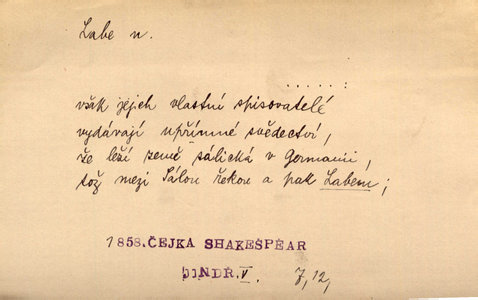 Labe n.
. . . . . :
však jejich vlastní spisovatelé
vydávají upřímné svědectví,
že leží země sálická v Germanii,
tož mezi Sálou řekou a pak Labem;
1858. ČEJKA SHAKESPEAR
JINDŘ. V. 7, 12,